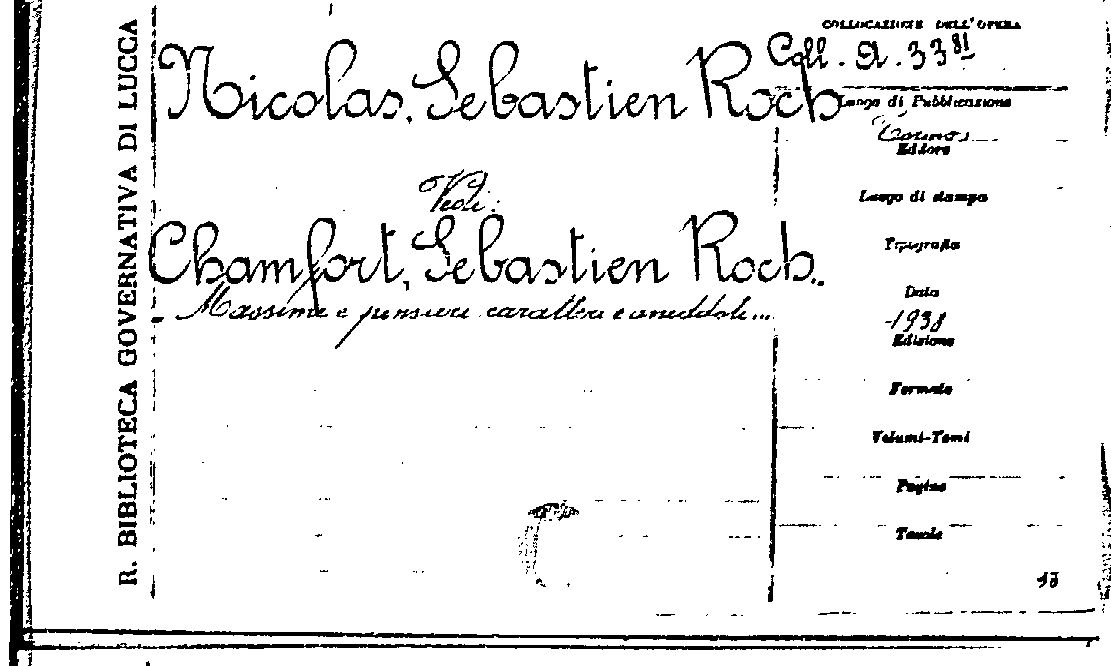 R. BIBLIOTECA GOVERNATIVA DI LUCCA
COLLOCAZIONE DELL'OPERA
Coll. A. 33 81
Nicolas, Sebastien Roch
Luogo di Pubblicazione
Torino
Editore
Vedi:
Luogo di stampa
Chamfort, Sebastien Roch.
Tipografia
Massime e pensieri caratteri e aneddoti...
Data
1938
Edizione
Formato
Volumi-Tomi
Pagine
Tavole
13